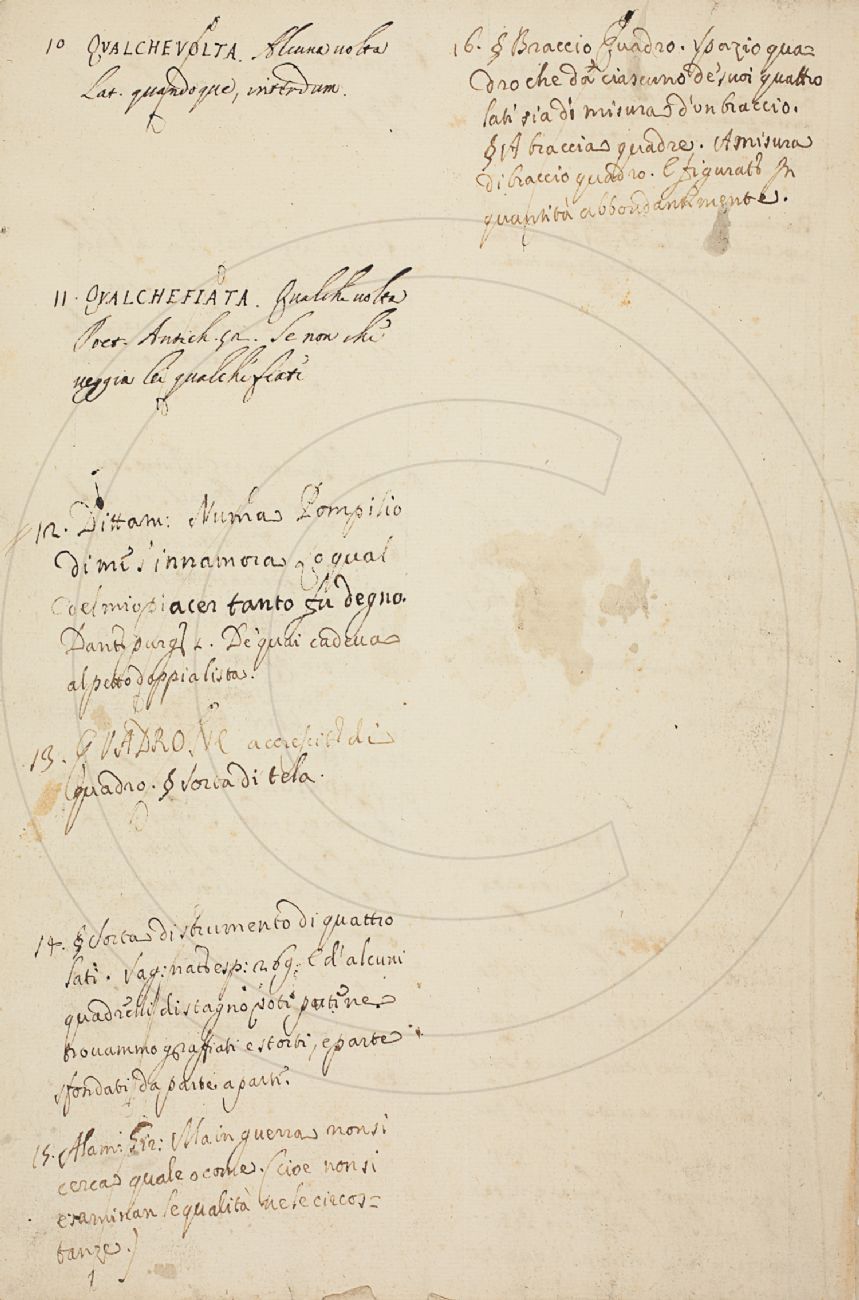 10 QVALCHEVOLTA. Alcuna uolta
Lat. quandoque, interdum.
11. QVALCHEFIATA. Qualche uolta
Poet. Antich. Se non che
ueggia lei qualche fiate
12. Dittam: Numa Pompilio
di me s'innamora lo qual
del mio piacer tanto fu degno.
Dant. purg. 2. De' quai cadeua
al petto doppia lista.
13. QVADRONE accrescit. di
quadro. § Sorta di tela.
14. § Sorta di strumento di quattro
lati. Sag: nat. esp: 269: E d'alcuni
quadrelli di stagno
trouammo graffiati e storti, e parte
sfondati da parte a parte.
15. Alam: Gir: Ma in guerra non si
cerca quale o come. (cioe non si
esaminan le qualità ne le circos=
tanze.)
16. § Braccio Quadro. Spazio qua=
dro che da ciascuno de' suoi quattro
lati sia di misura d'un braccio.
§ A braccia quadre. A misura
di braccio quadro. E figurat. In
quantità abbondantemente.